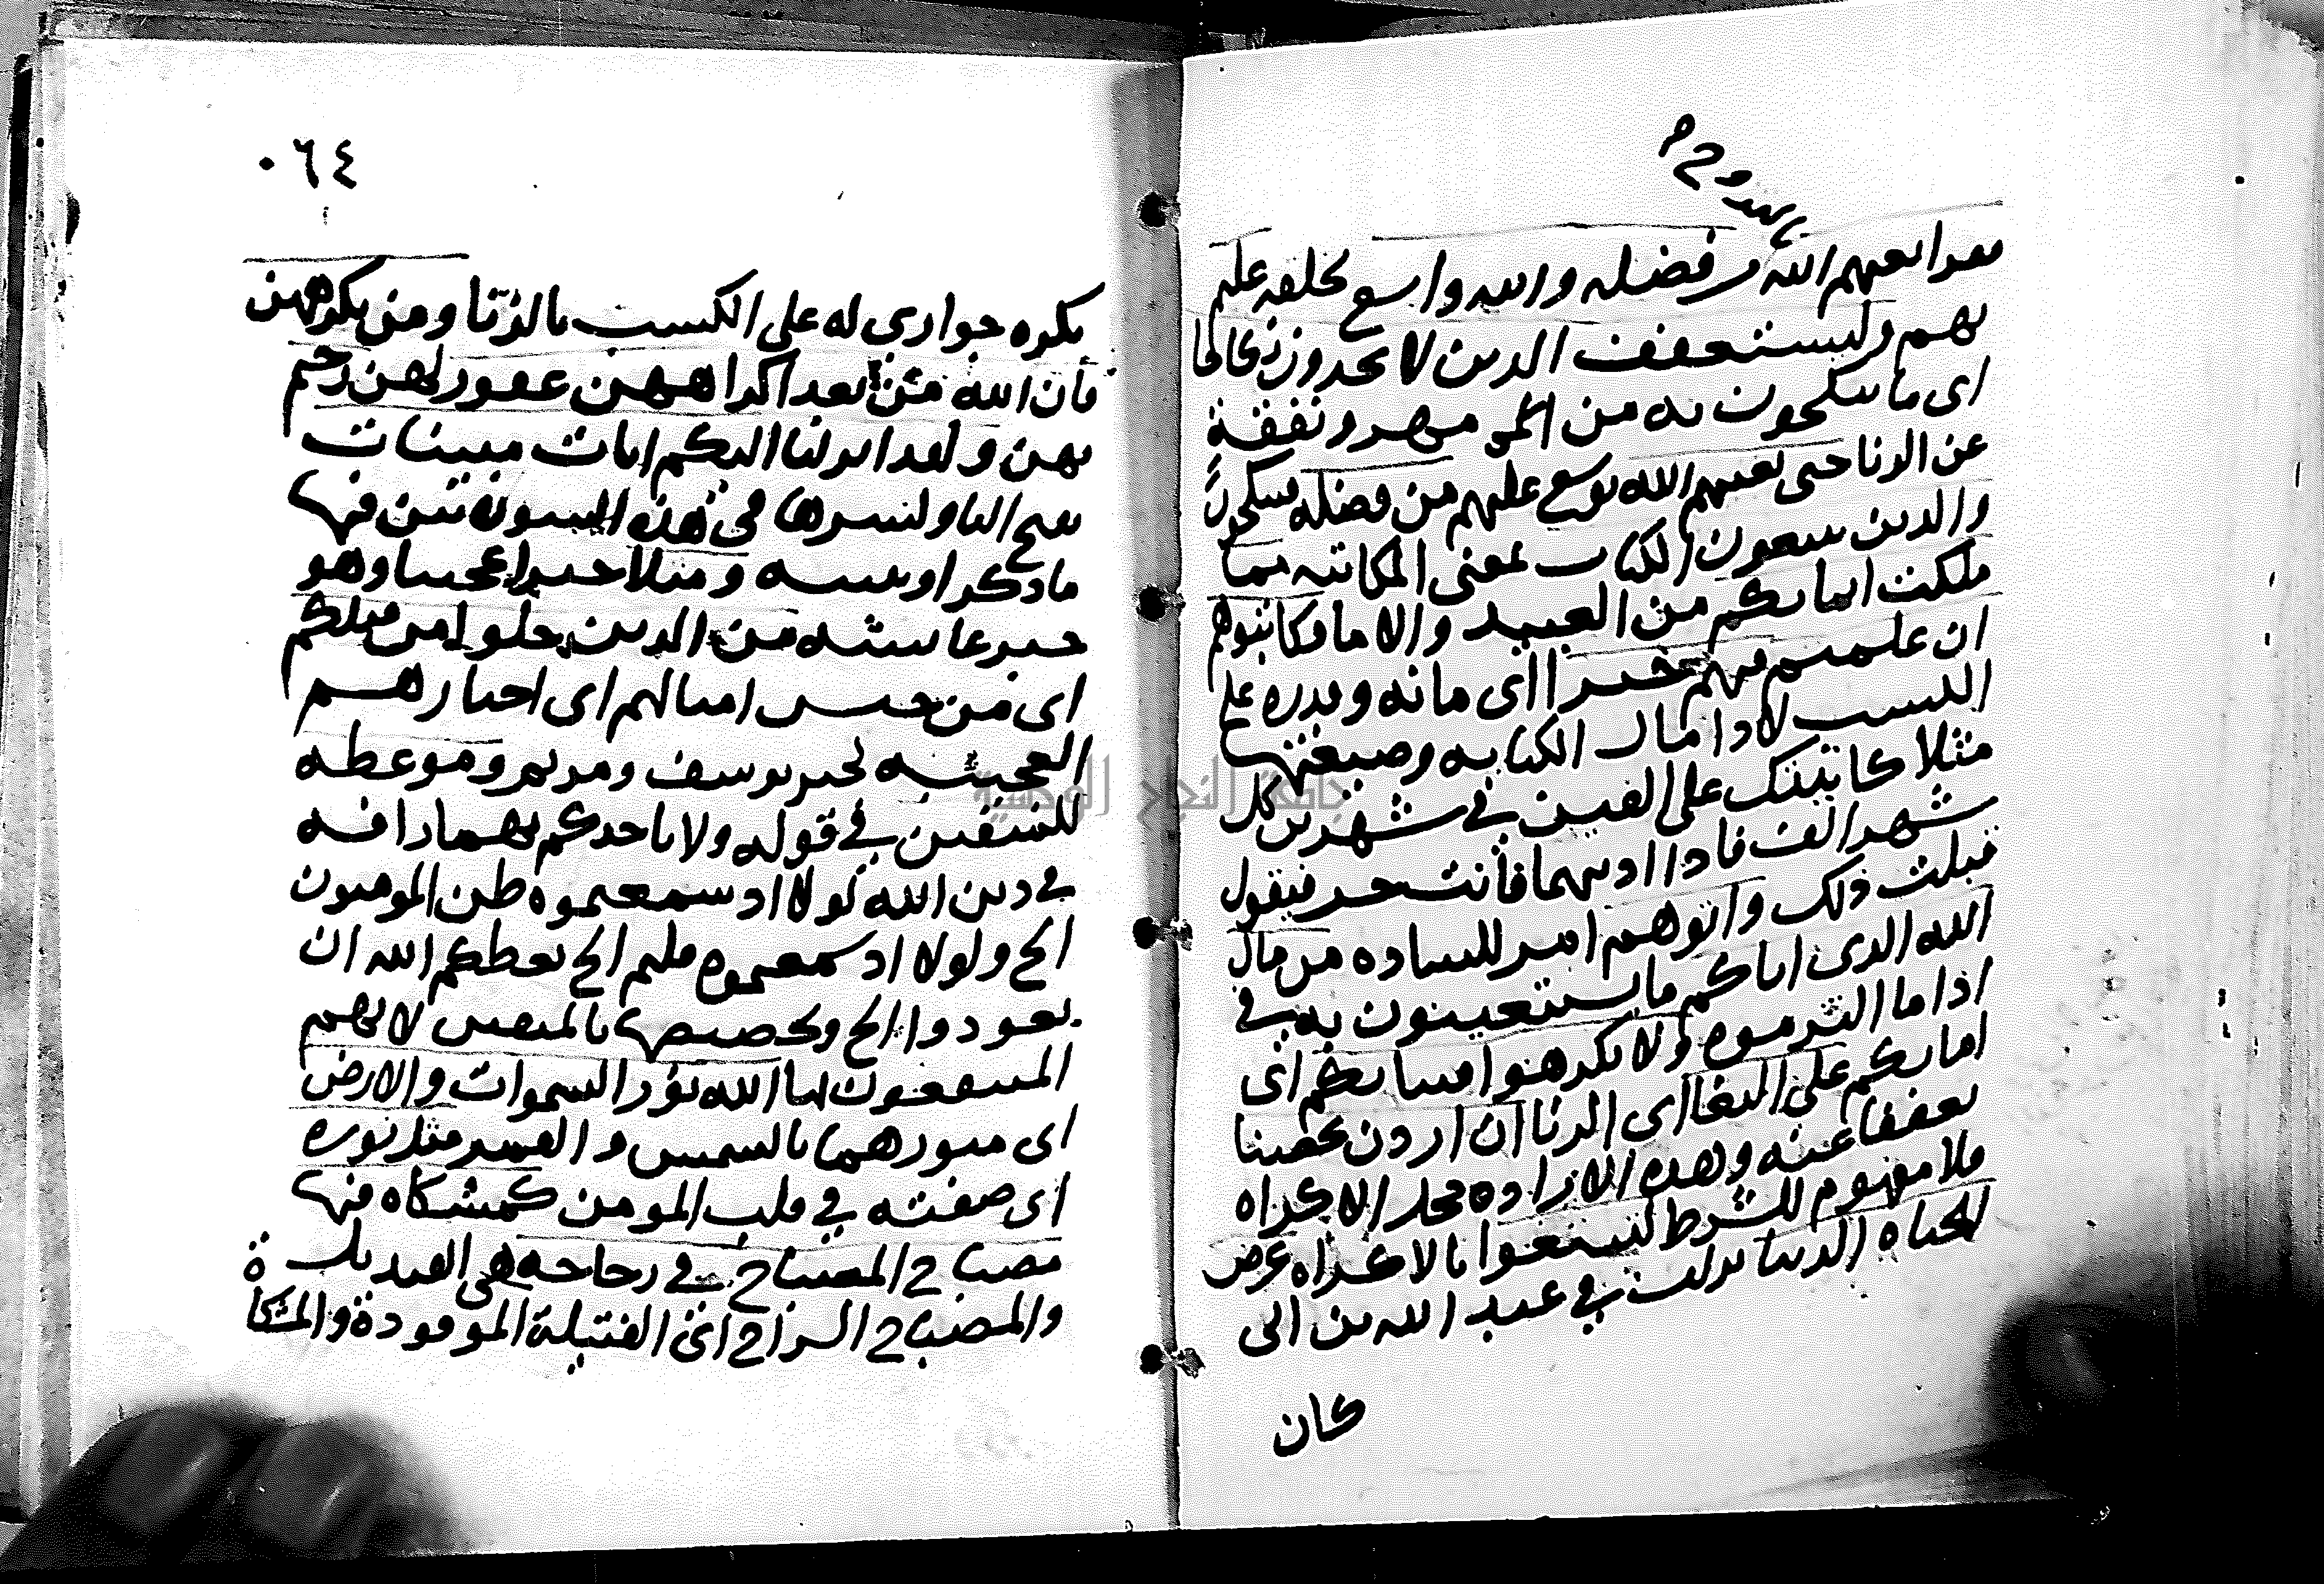 بالتزوج م
فقرا يغنهم الله من فضله والله واسع لخلقه عليم
بهم وليستعفف الذين لا يجدون نكاحا
اى ما ينكحون به من مهر ونفقة
عن الزنا حتى يغنيهم الله يوسع عليهم من فضله فينكحون
والذين يبتغون الكتاب بمعنى المكاتبه مما
ملكت ايمانكم من العبيد والاما فكاتبوهم
ان علمتم فيهم خيرا اى امانه وقدره على
الكسب لادا مال الكتابه وصيغتها
مثلا كاتبتك على الفين فى شهرين كل
شهر الف فاذا اديتهما فانت حر فيقول
قبلت ذلك واتوهم امر للساده من مال
الله الذى اتاكم ما يستعينون به فى
اذا ما التزموه ولا تكرهوا فتياتكم اى
امايكم على البغا اى الزنا ان اردن تحصنا
تعففا عنه وهذه الاراده محل الاكراه
فلا مفهوم للشرط لتبتغوا بالاكراه عرض
الحياه الدنيا نزلت فى عبد الله بن ابى
كان
٠٦٤
يكره جوارى له على الكسب بالزنا ومن يكرههن
فان الله من بعد اكراههن غفور لهن رحيم
بهن ولقد انزلنا اليكم ايات مبينات
بفتح اليا وكسرها فى هذه السوره بين فيها
ما ذكر او بينه ومثلا خبرا عجيبا وهو
خبر عايشه من الذين خلوا من قبلكم
اى من جنس امثالهم اى اخبارهم
العجيبه كخبر يوسف ومريم وموعظه
للمتقين فى قوله ولا تاخذكم بهما رافه
فى دين الله لولا اذ سمعتموه ظن المومنون
الخ ولولا اذ سمعتموه قلتم الخ يعظكم الله ان
تعودوا الخ وتخصيصها بالمتقين لانهم
المنتفعون بها الله نور السموات والارض
اى منورهما بالشمس والقمر مثل نوره
اى صفته فى قلب المومن كمشكاه فيها
مصباح المصباح فى زجاجه هى القنديل
والمصباح السراج اى الفتيله الموقودة والمشكاة
جامعة النجاح الوطنية